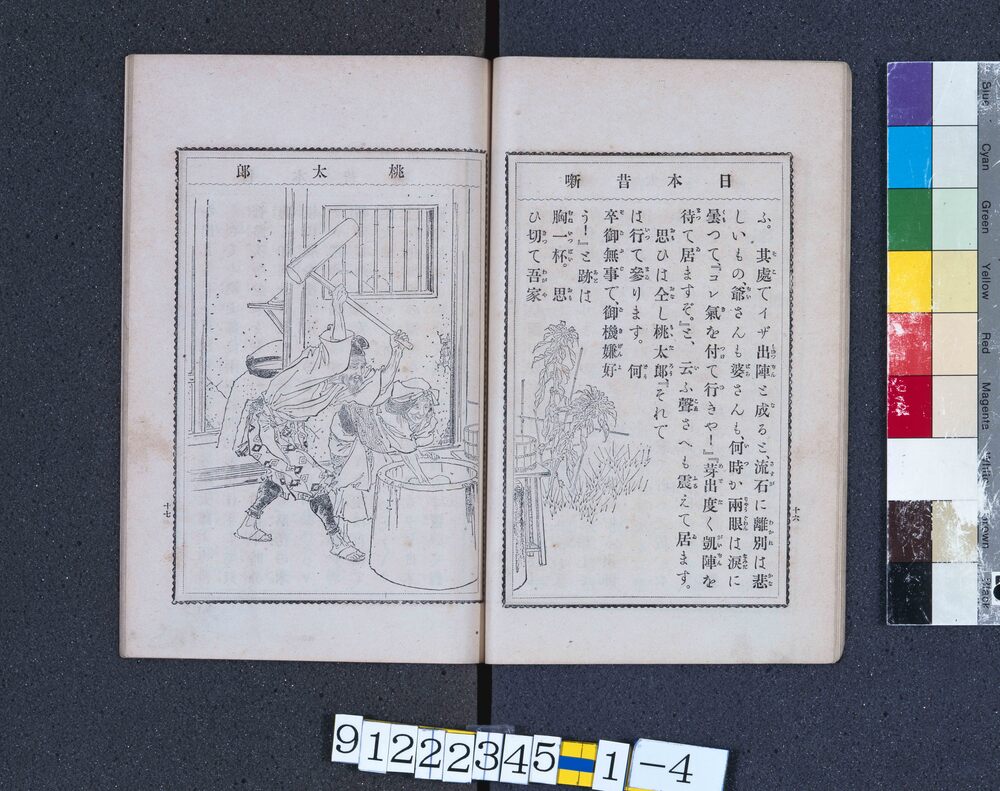 日本昔噺
ふ。其處でイザ出陣と成ると、流石に離別は悲
しいもの、爺さんも婆さんも、何時か兩眼は淚に
曇つて、『コレ氣を付て行きや！』『芽出度く凱陣を
待て居ますぞ。』と、云ふ聲さへも震えて居ます。
思ひは仝し桃太郎『それて
は行て參ります。何
卒御無事で、御機嫌好
う！』と跡は
胸一杯。思
ひ切て吾家
十六
桃太郎
十七
912222345
1
-4
Blue
Cyan
Green
Yellow
Red
Magenta
White
Brown
Black